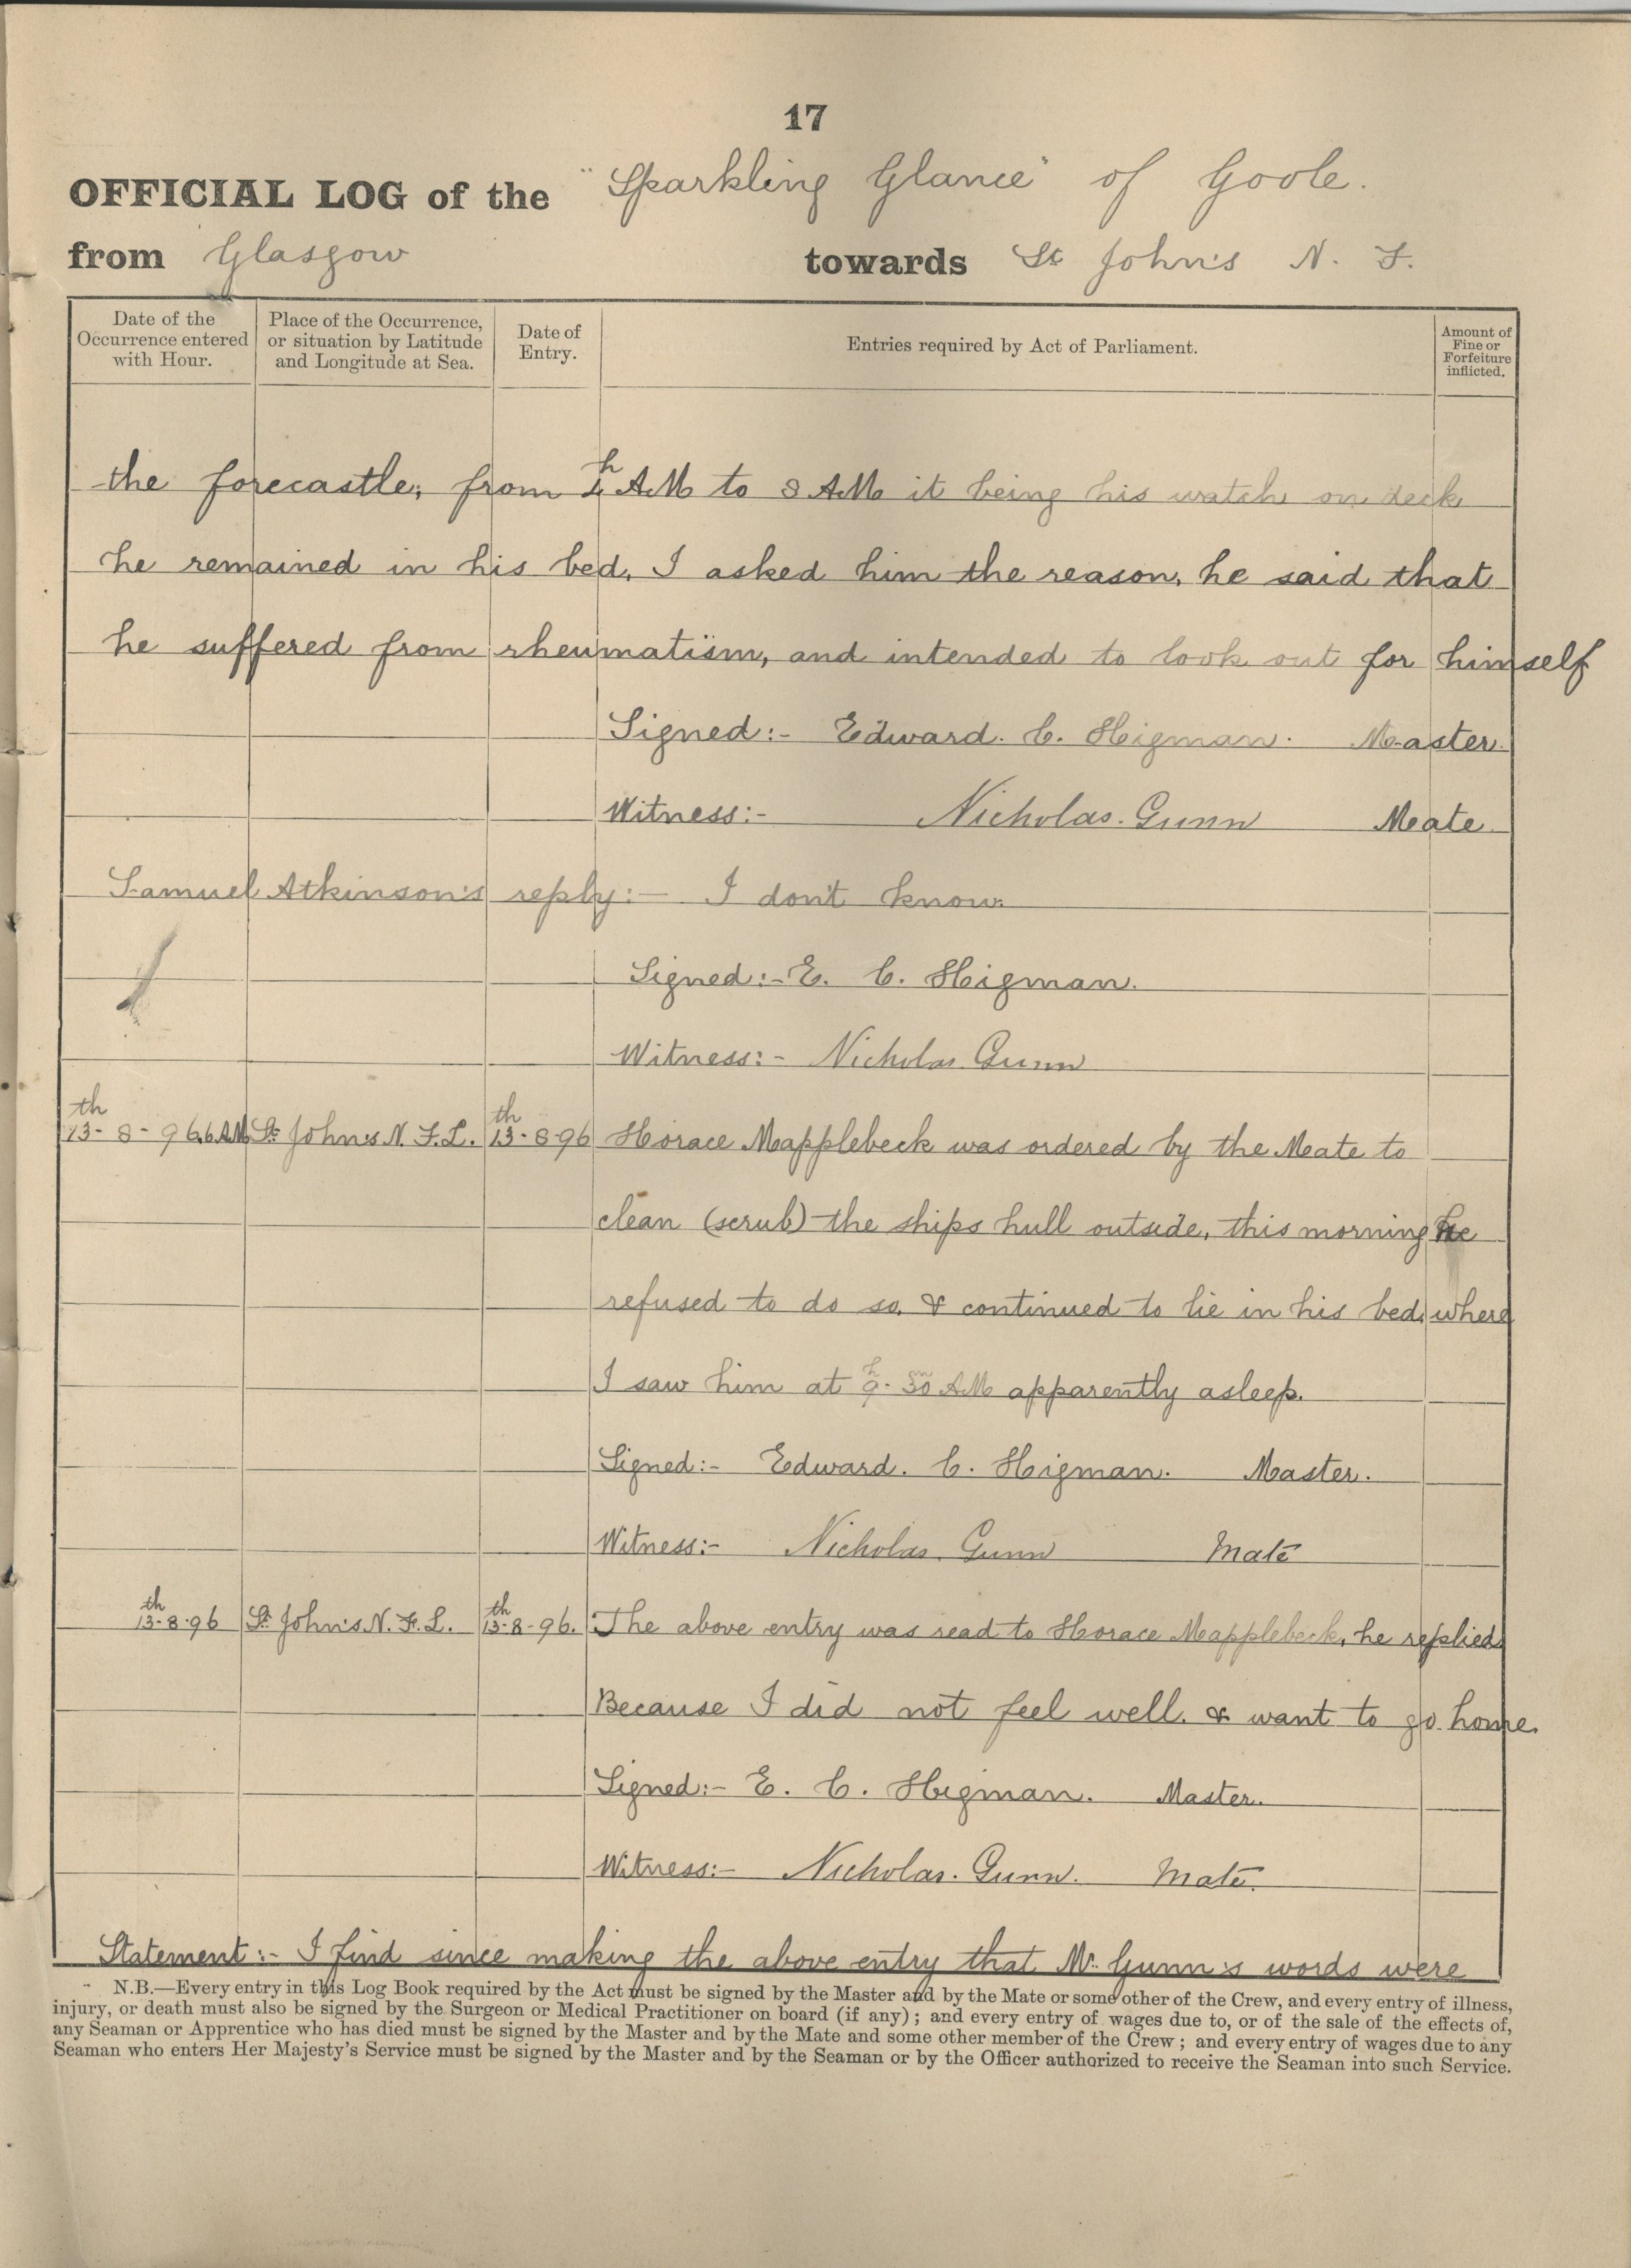 17
OFFICIAL LOG of the "Sparkling Glance" of Goole.
from Glasgow towards St John's N. F.
Date of the Occurrence entered with Hour.
Place of the Occurrence, or situation by Latitude and Longitude at Sea.
Date of Entry.
Entries required by Act of Parliament.
Amount of Fine or Forfeiture inflicted.
the forecastle, from 4h AM to 8 AM it being his watch on deck
he remained in his bed, I asked him the reason, he said that
he suffered from rheumatism, and intended to look out for himself
Signed:- Edward. C. Higman. Master.
Witness:- Nicholas. Gunn Mate.
Samuel Atkinson's reply:- I don't know.
Signed:- E. C. Higman.
Witness:- Nicholas Gunn
13th-8-96 6 AM St John's N. F. L. 13th-8-96 Horace Mapplebeck was ordered by the Mate to
clean (scrub) the ships hull outside, this morning he
refused to do so, & continued to lie in his bed, where
I saw him at 9h-30m AM apparently asleep.
Signed:- Edward. C. Higman. Master.
Witness:- Nicholas. Gunn Mate
13th-8-96 St John's N. F. L. 13th-8-96. The above entry was read to Horace Mapplebeck, he replied
Because I did not feel well. & want to go home.
Signed:- E. C. Higman. Master.
Witness:- Nicholas. Gunn. Mate.
Statement:- I find since making the above entry that Mr. Gunn's words were
N.B.—Every entry in this Log Book required by the Act must be signed by the Master and by the Mate or some other of the Crew, and every entry of illness,
injury, or death must also be signed by the Surgeon or Medical Practitioner on board (if any); and every entry of wages due to, or of the sale of the effects of,
any Seaman or Apprentice who has died must be signed by the Master and by the Mate and some other member of the Crew; and every entry of wages due to any
Seaman who enters Her Majesty's Service must be signed by the Master and by the Seaman or by the Officer authorized to receive the Seaman into such Service.